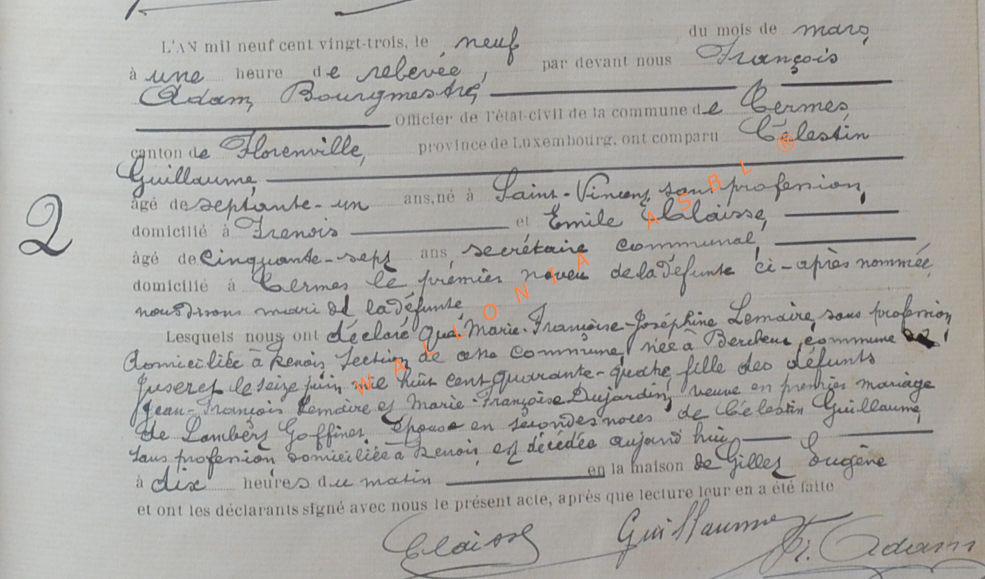 L'AN mil neuf cent vingt-trois, le neuf du mois de mars
à une heure de relevée, par devant nous François
Adam, Bourgmestre,
Officier de l'état-civil de la commune de Termes
canton de Florenville, province de Luxembourg, ont comparu Célestin
Guillaume,
âgé de septante-un ans, né à Saint-Vincent, sans profession,
domicilié à Frenois et Emile Claisse,
2
âgé de cinquante-sept ans, secrétaire communal,
domicilié à Termes le premier neveu de la défunte ci-après nommée,
nous disons mari de la défunte
Lesquels nous ont déclaré que Marie-Françoise-Joséphine Lemaire, sans profession,
domiciliée à Frenois section de cette commune, née à Bercheux, commune de
Juseret le seize juin mil huit cent quarante-quatre, fille des défunts
Jean-François Lemaire et Marie-Françoise Dujardin, veuve en premier mariage
de Lambert Goffinet, épouse en secondes noces de Célestin Guillaume,
sans profession domiciliée à Frenois, est décédée aujourd'hui
à dix heures du matin en la maison de Gilles Eugène
et ont les déclarants signé avec nous le présent acte, après que lecture leur en a été faite
Claisse Guillaume Fr. Adam
WALLONIA ASBL ®